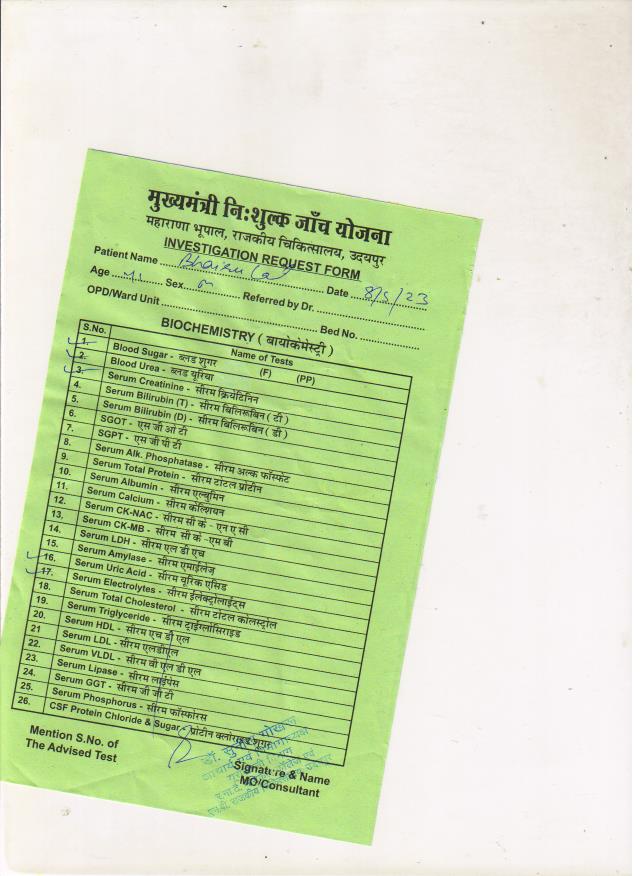 मुख्यमंत्री निःशुल्क जाँच योजना
महाराणा भूपाल, राजकीय चिकित्सालय, उदयपुर
INVESTIGATION REQUEST FORM
Patient Name ........ Date 8/5/23
Age ........ Sex m Referred by Dr. ........
OPD/Ward Unit ........ Bed No. ........
BIOCHEMISTRY ( बायोकेमेस्ट्री )
S.No. Name of Tests
1. Blood Sugar - ब्लड शुगर (F) (PP)
2. Blood Urea - ब्लड यूरिया
3. Serum Creatinine - सीरम क्रियेटिनिन
4. Serum Bilirubin (T) - सीरम बिलिरूबिन ( टी )
5. Serum Bilirubin (D) - सीरम बिलिरूबिन ( डी )
6. SGOT - एस जी ओ टी
7. SGPT - एस जी पी टी
8. Serum Alk. Phosphatase - सीरम अल्क फॉस्फेट
9. Serum Total Protein - सीरम टोटल प्रोटीन
10. Serum Albumin - सीरम एल्बुमिन
11. Serum Calcium - सीरम केल्शियन
12. Serum CK-NAC - सीरम सी के - एन ए सी
13. Serum CK-MB - सीरम सी के -एम बी
14. Serum LDH - सीरम एल डी एच
15. Serum Amylase - सीरम एमाईलेज
16. Serum Uric Acid - सीरम यूरिक एसिड
17. Serum Electrolytes - सीरम ईलेक्ट्रोलाईट्स
18. Serum Total Cholesterol - सीरम टोटल कोलस्ट्रोल
19. Serum Triglyceride - सीरम ट्राईग्लीसिराइड
20. Serum HDL - सीरम एच डी एल
21 Serum LDL - सीरम एलडीएल
22. Serum VLDL - सीरम वी एल डी एल
23. Serum Lipase - सीरम लाईपेस
24. Serum GGT - सीरम जी जी टी
25. Serum Phosphorus - सीरम फॉस्फोरस
26. CSF Protein Chloride & Sugar - प्रोटीन क्लोराइड शुगर
Mention S.No. of
The Advised Test
Signature & Name
MO/Consultant